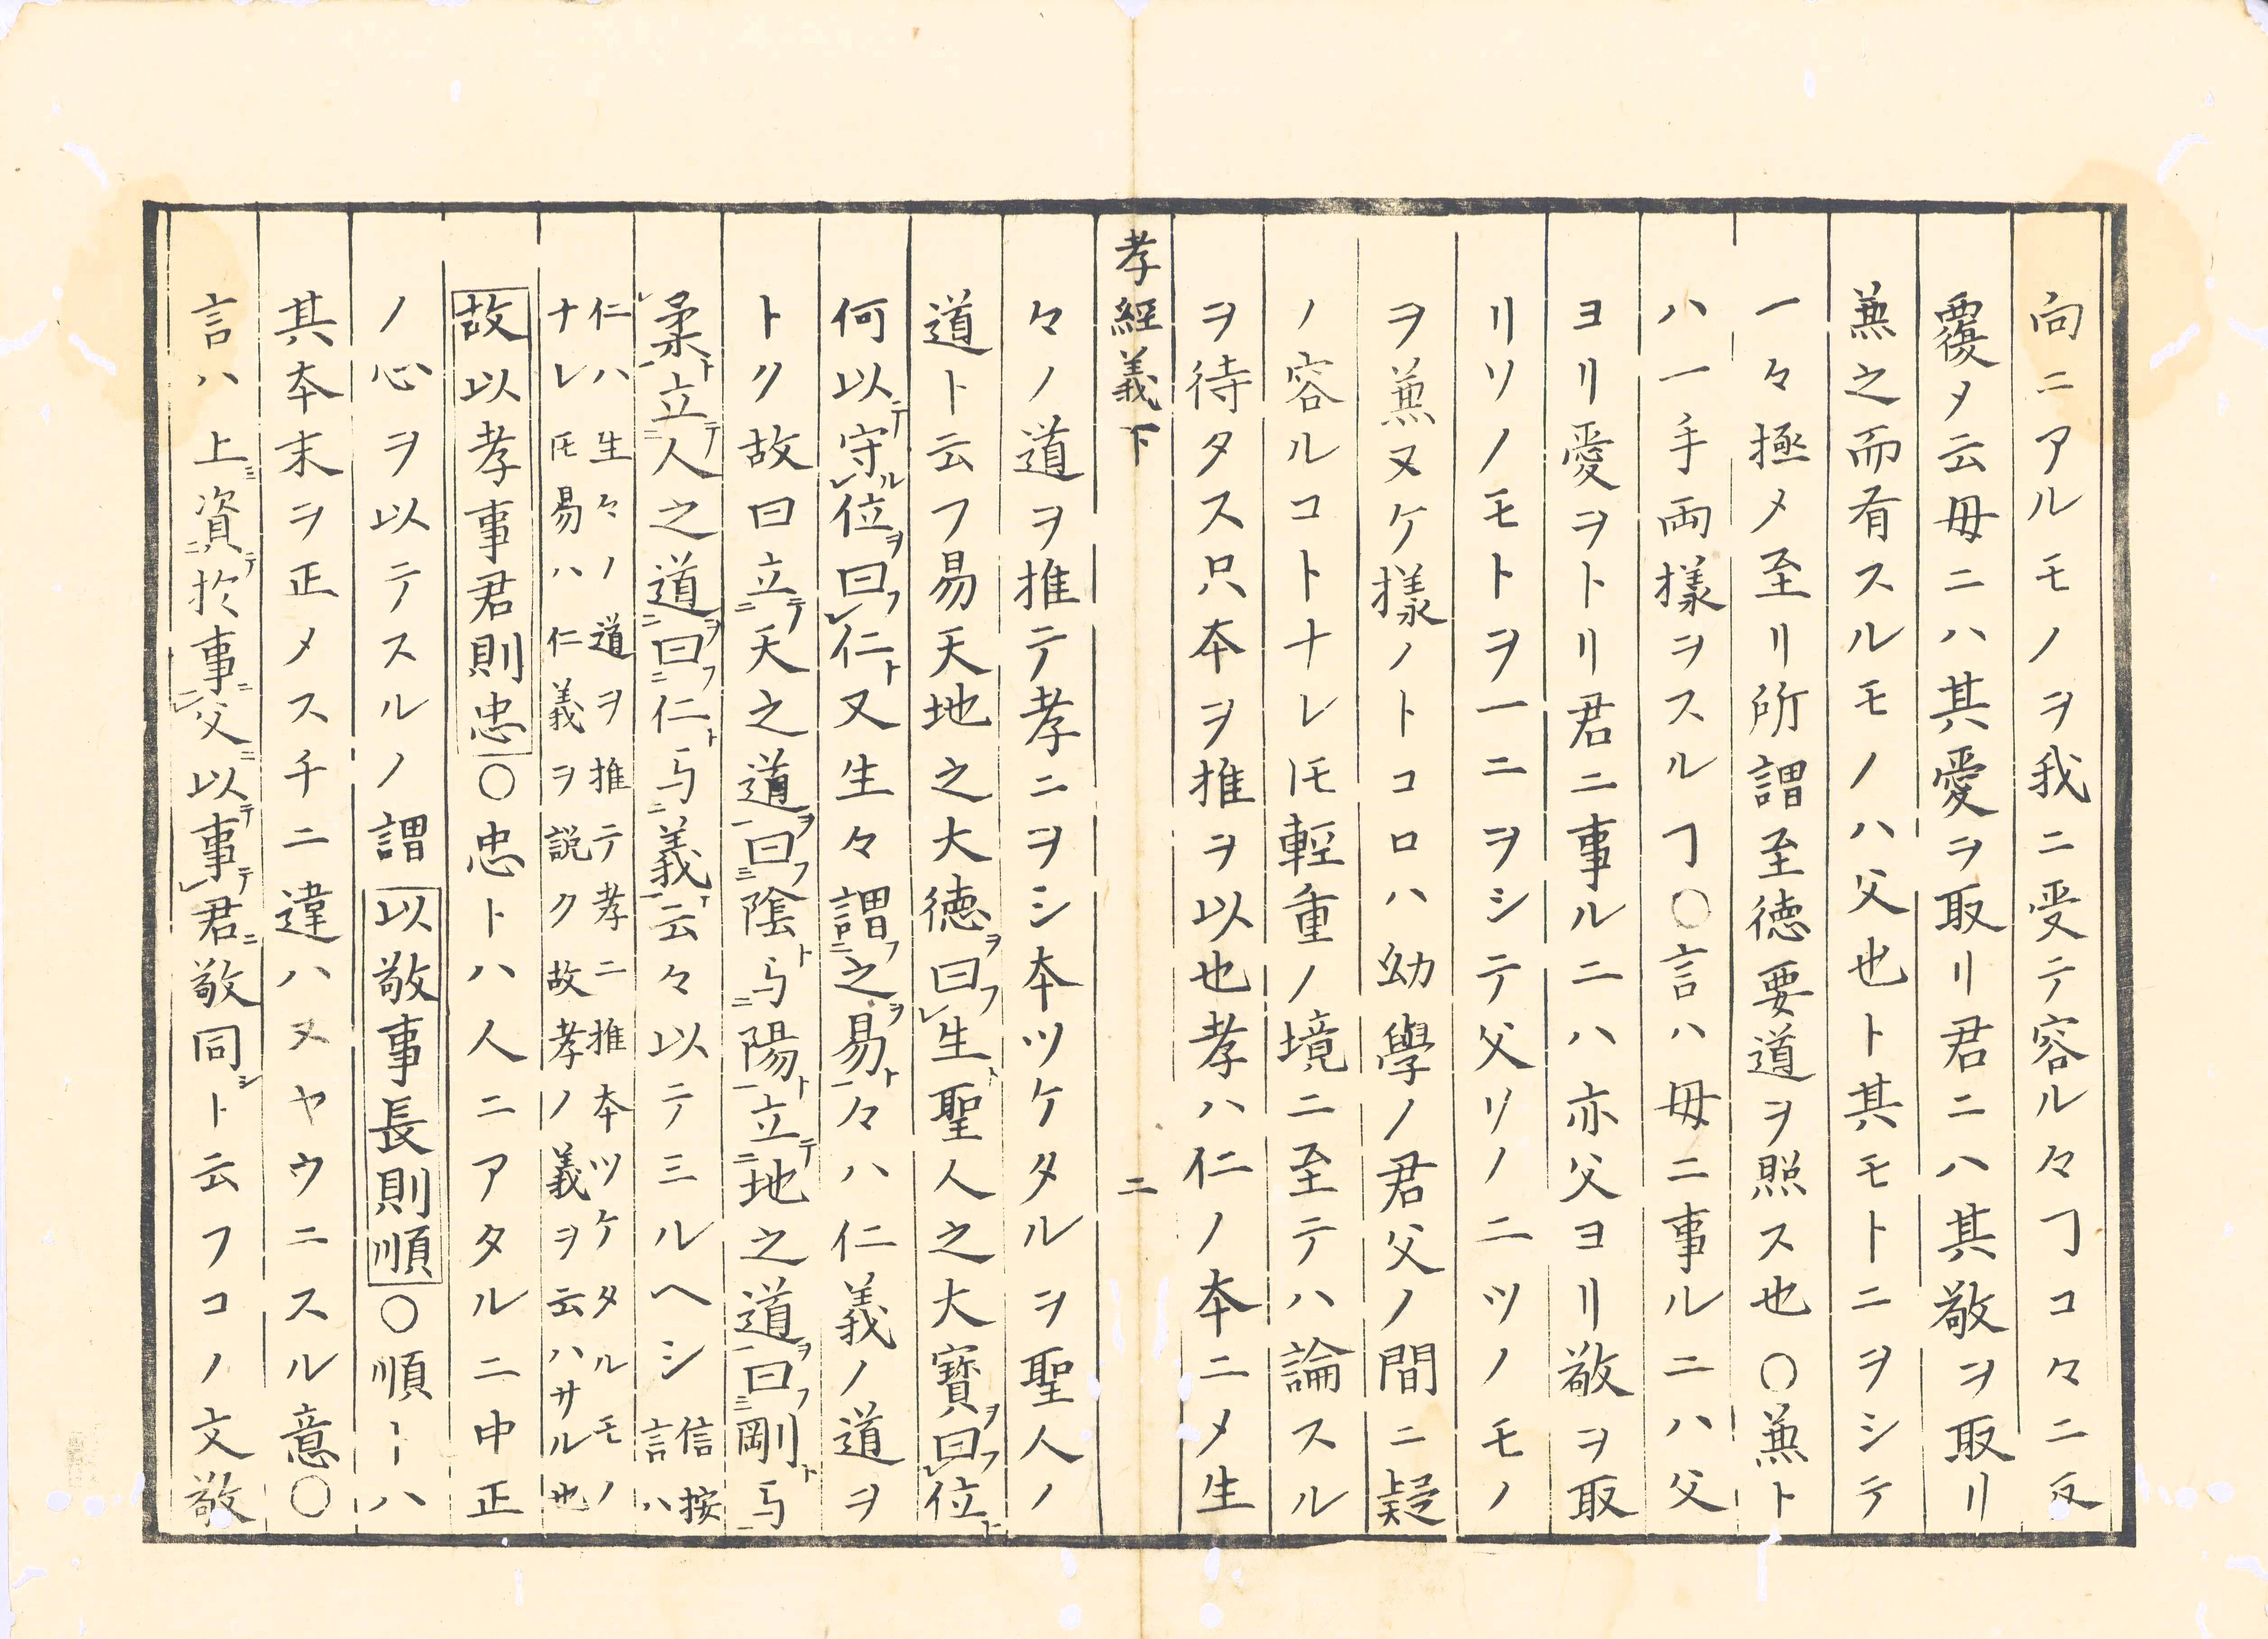 向ニアルモノヲ我ニ受テ容ル々ヿコ々ニ反
覆メ云母ニハ其愛ヲ取リ君ニハ其敬ヲ取リ
兼之而有スルモノハ父也ト其モトニヲシテ
一々極メ至リ所謂至徳要道ヲ照ス也〇兼ト
ハ一手両樣ヲスルヿ〇言ハ母ニ事ルニハ父
ヨリ愛ヲトリ君ニ事ルニハ亦父ヨリ敬ヲ取
リソノモトヲ一ニヲシテ父リノ二ツノモノ
ヲ兼ヌケ樣ノトコロハ幼學ノ君父ノ間ニ疑
ノ容ルコトナレ𪜈輕重ノ境ニ至テハ論スル
ヲ待タス只本ヲ推ヲ以也孝ハ仁ノ本ニメ生
孝經義下 二
々ノ道ヲ推テ孝ニヲシ本ツケタルヲ聖人ノ
道ト云フ易天地之大徳ヲ曰フ㆑生ト聖人之大寶ヲ曰フ㆑位ト
何以テ守ル㆑位ヲ曰フ㆑仁ト又生々謂フ㆓之ヲ易ト㆒々ハ仁義ノ道ヲ
トク故曰立テ㆓天之道ヲ㆒曰フ㆔陰ト与㆓陽ト㆒立テ㆓地之道ヲ㆒曰フ㆔剛ト与㆒
㆑柔ト㆒立テ㆓人之道ヲ㆓曰フ㆓仁ト与㆓義ト㆒云々以テ三ルヘシ信按言ハ
仁ハ生々ノ道ヲ推テ孝ニ推本ツケタルモノ
ナレ𪜈易ハ仁義ヲ説ク故孝ノ義ヲ云ハサル也
故以孝事君則忠〇忠トハ人ニアタルニ中正
ノ心ヲ以テスルノ謂以敬事長則順〇順トハ
其本末ヲ正メスチニ違ハヌヤウニスル意〇
言ハ上ミ資テ㆓於事ニ㆑父ニ以テ事テ㆑君ニ敬同シト云フコノ文敬